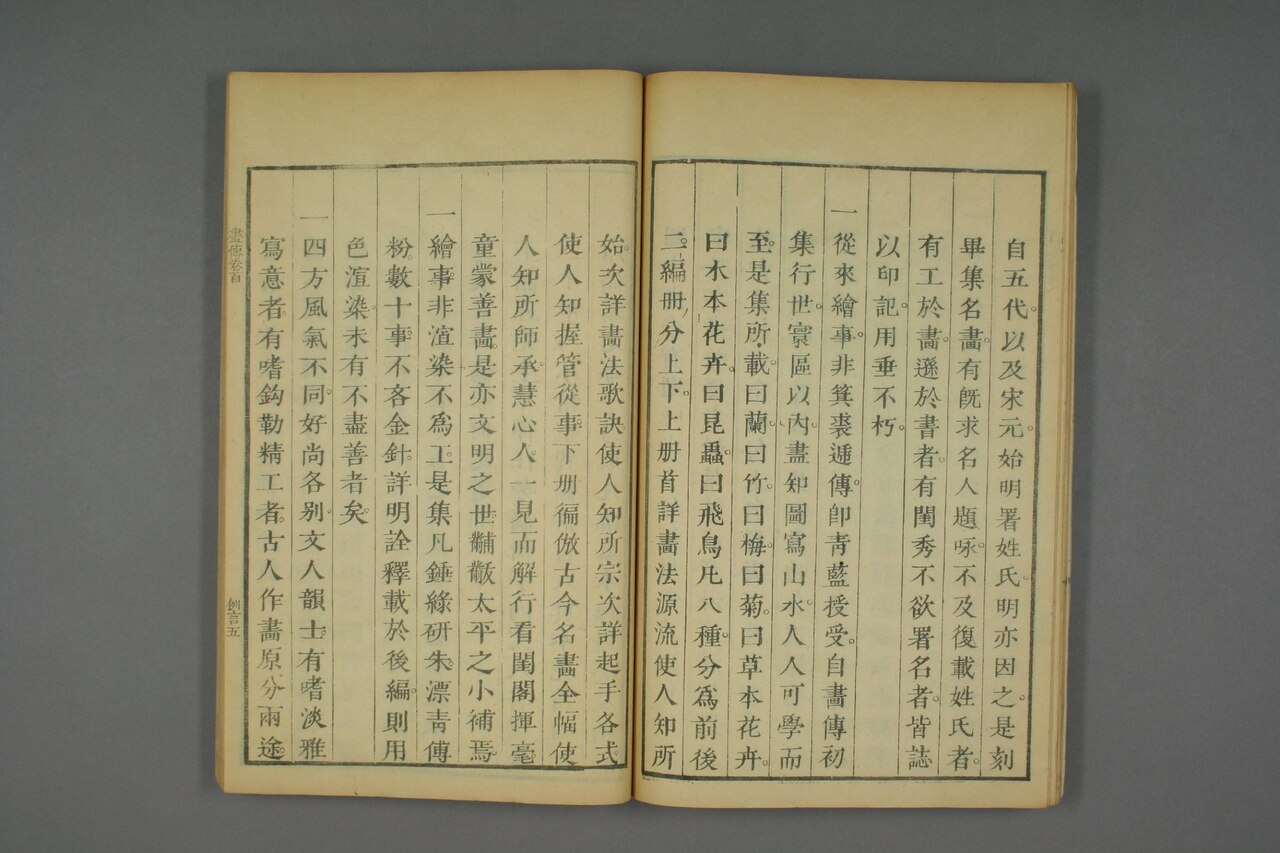 自五代。以及宋元。始明署姓氏。明亦因之。是刻
畢集名畫。有旣求名人題咏。不及復載姓氏者。
有工於畫。遜於書者。有閨秀不欲署名者。皆誌
以印記。用垂不朽。
一從來繪事。非箕裘遞傳。卽靑藍授受。自畫傳初
集行世。寰區以內。盡知圖寫山水。人人可學。而
至是集所載。曰蘭。曰竹。曰梅。曰菊。曰草本花卉。
曰木本花卉。曰昆蟲。曰飛鳥。凡八種。分爲前後
二編。册分上下。上册首詳畫法源流。使人知所
始。次詳畫法歌訣。使人知所宗。次詳起手各式
使人知握管從事。下册徧倣古今名畫全幅。使
人知所師承。慧心人一見而解。行看閨閣揮毫
童蒙善畫。是亦文明之世。黼黻太平之小補焉。
一繪事非渲染不爲工。是集凡錘綠硏朱。漂靑傅
粉。數十事。不吝金針。詳明詮釋。載於後編。則用
色渲染。未有不盡善者矣。
一四方風氣不同。好尚各别。文人韻士。有嗜淡雅
寫意者。有嗜鈎勒精工者。古人作畫原分兩途。
畫傳卷首
例言五